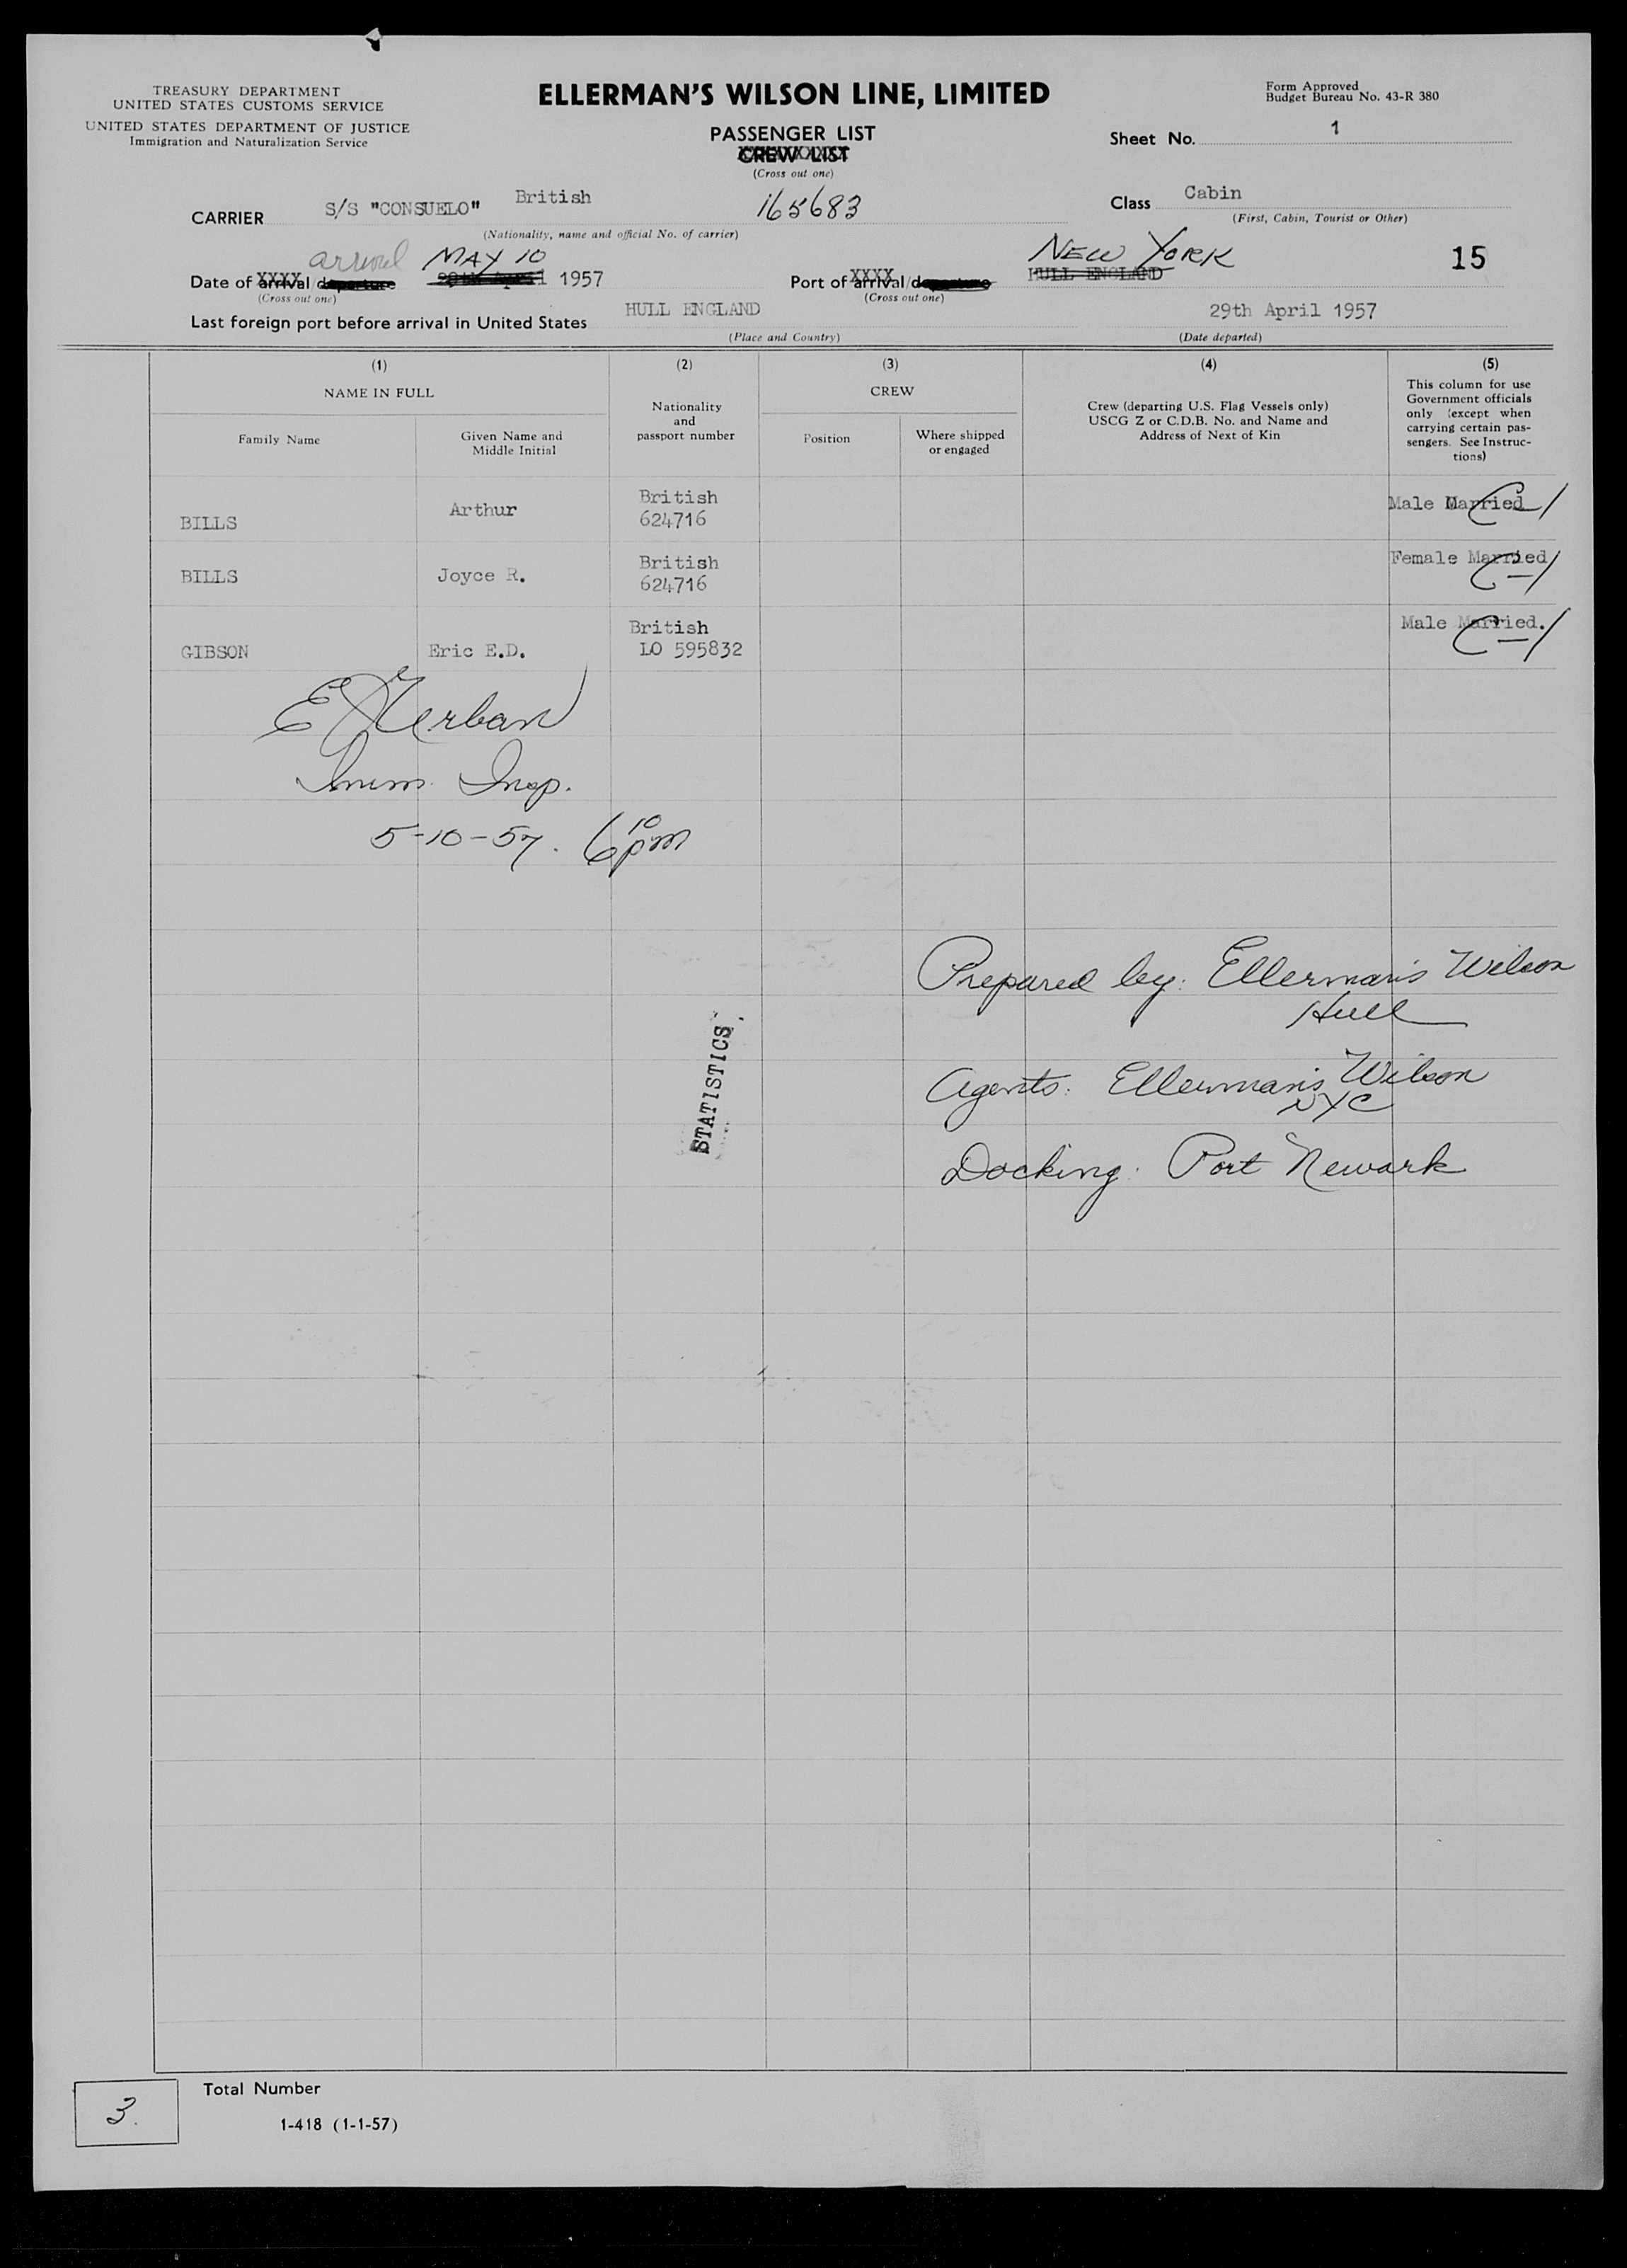 TREASURY DEPARTMENT
UNITED STATES CUSTOMS SERVICE
UNITED STATES DEPARTMENT OF JUSTICE
Immigration and Naturalization Service
ELLERMAN'S WILSON LINE, LIMITED
PASSENGER LIST
CREW LIST
(Cross out one)
Form Approved
Budget Bureau No. 43-R 380
Sheet No. 1
CARRIER S/S "CONSUELO" British 165683
(Nationality, name and official No. of carrier)
Class Cabin
(First, Cabin, Tourist or Other)
arrival MAY 10
Date of arrival/departure 29th April 1957
(Cross out one)
NEW YORK
Port of arrival/departure HULL ENGLAND
(Cross out one)
15
Last foreign port before arrival in United States HULL ENGLAND 29th April 1957
(Place and Country) (Date departed)
(1) (2) (3) (4) (5)
NAME IN FULL
Family Name
Given Name and
Middle Initial
Nationality
and
passport number
CREW
Position
Where shipped
or engaged
Crew (departing U.S. Flag Vessels only)
USCG Z or C.D.B. No. and Name and
Address of Next of Kin
This column for use
Government officials
only (except when
carrying certain pas-
sengers. See Instruc-
tions)
BILLS Arthur British 624716 Male Married
BILLS Joyce R. British 624716 Female Married
GIBSON Eric E.D. British LO 595832 Male Married.
Urban
Imm. Insp.
5-10-57. 6 10 pm
Prepared by: Ellerman's Wilson
Hull
Agents: Ellerman's Wilson
NYC
Docking: Port Newark
STATISTICS
3.
Total Number
1-418 (1-1-57)